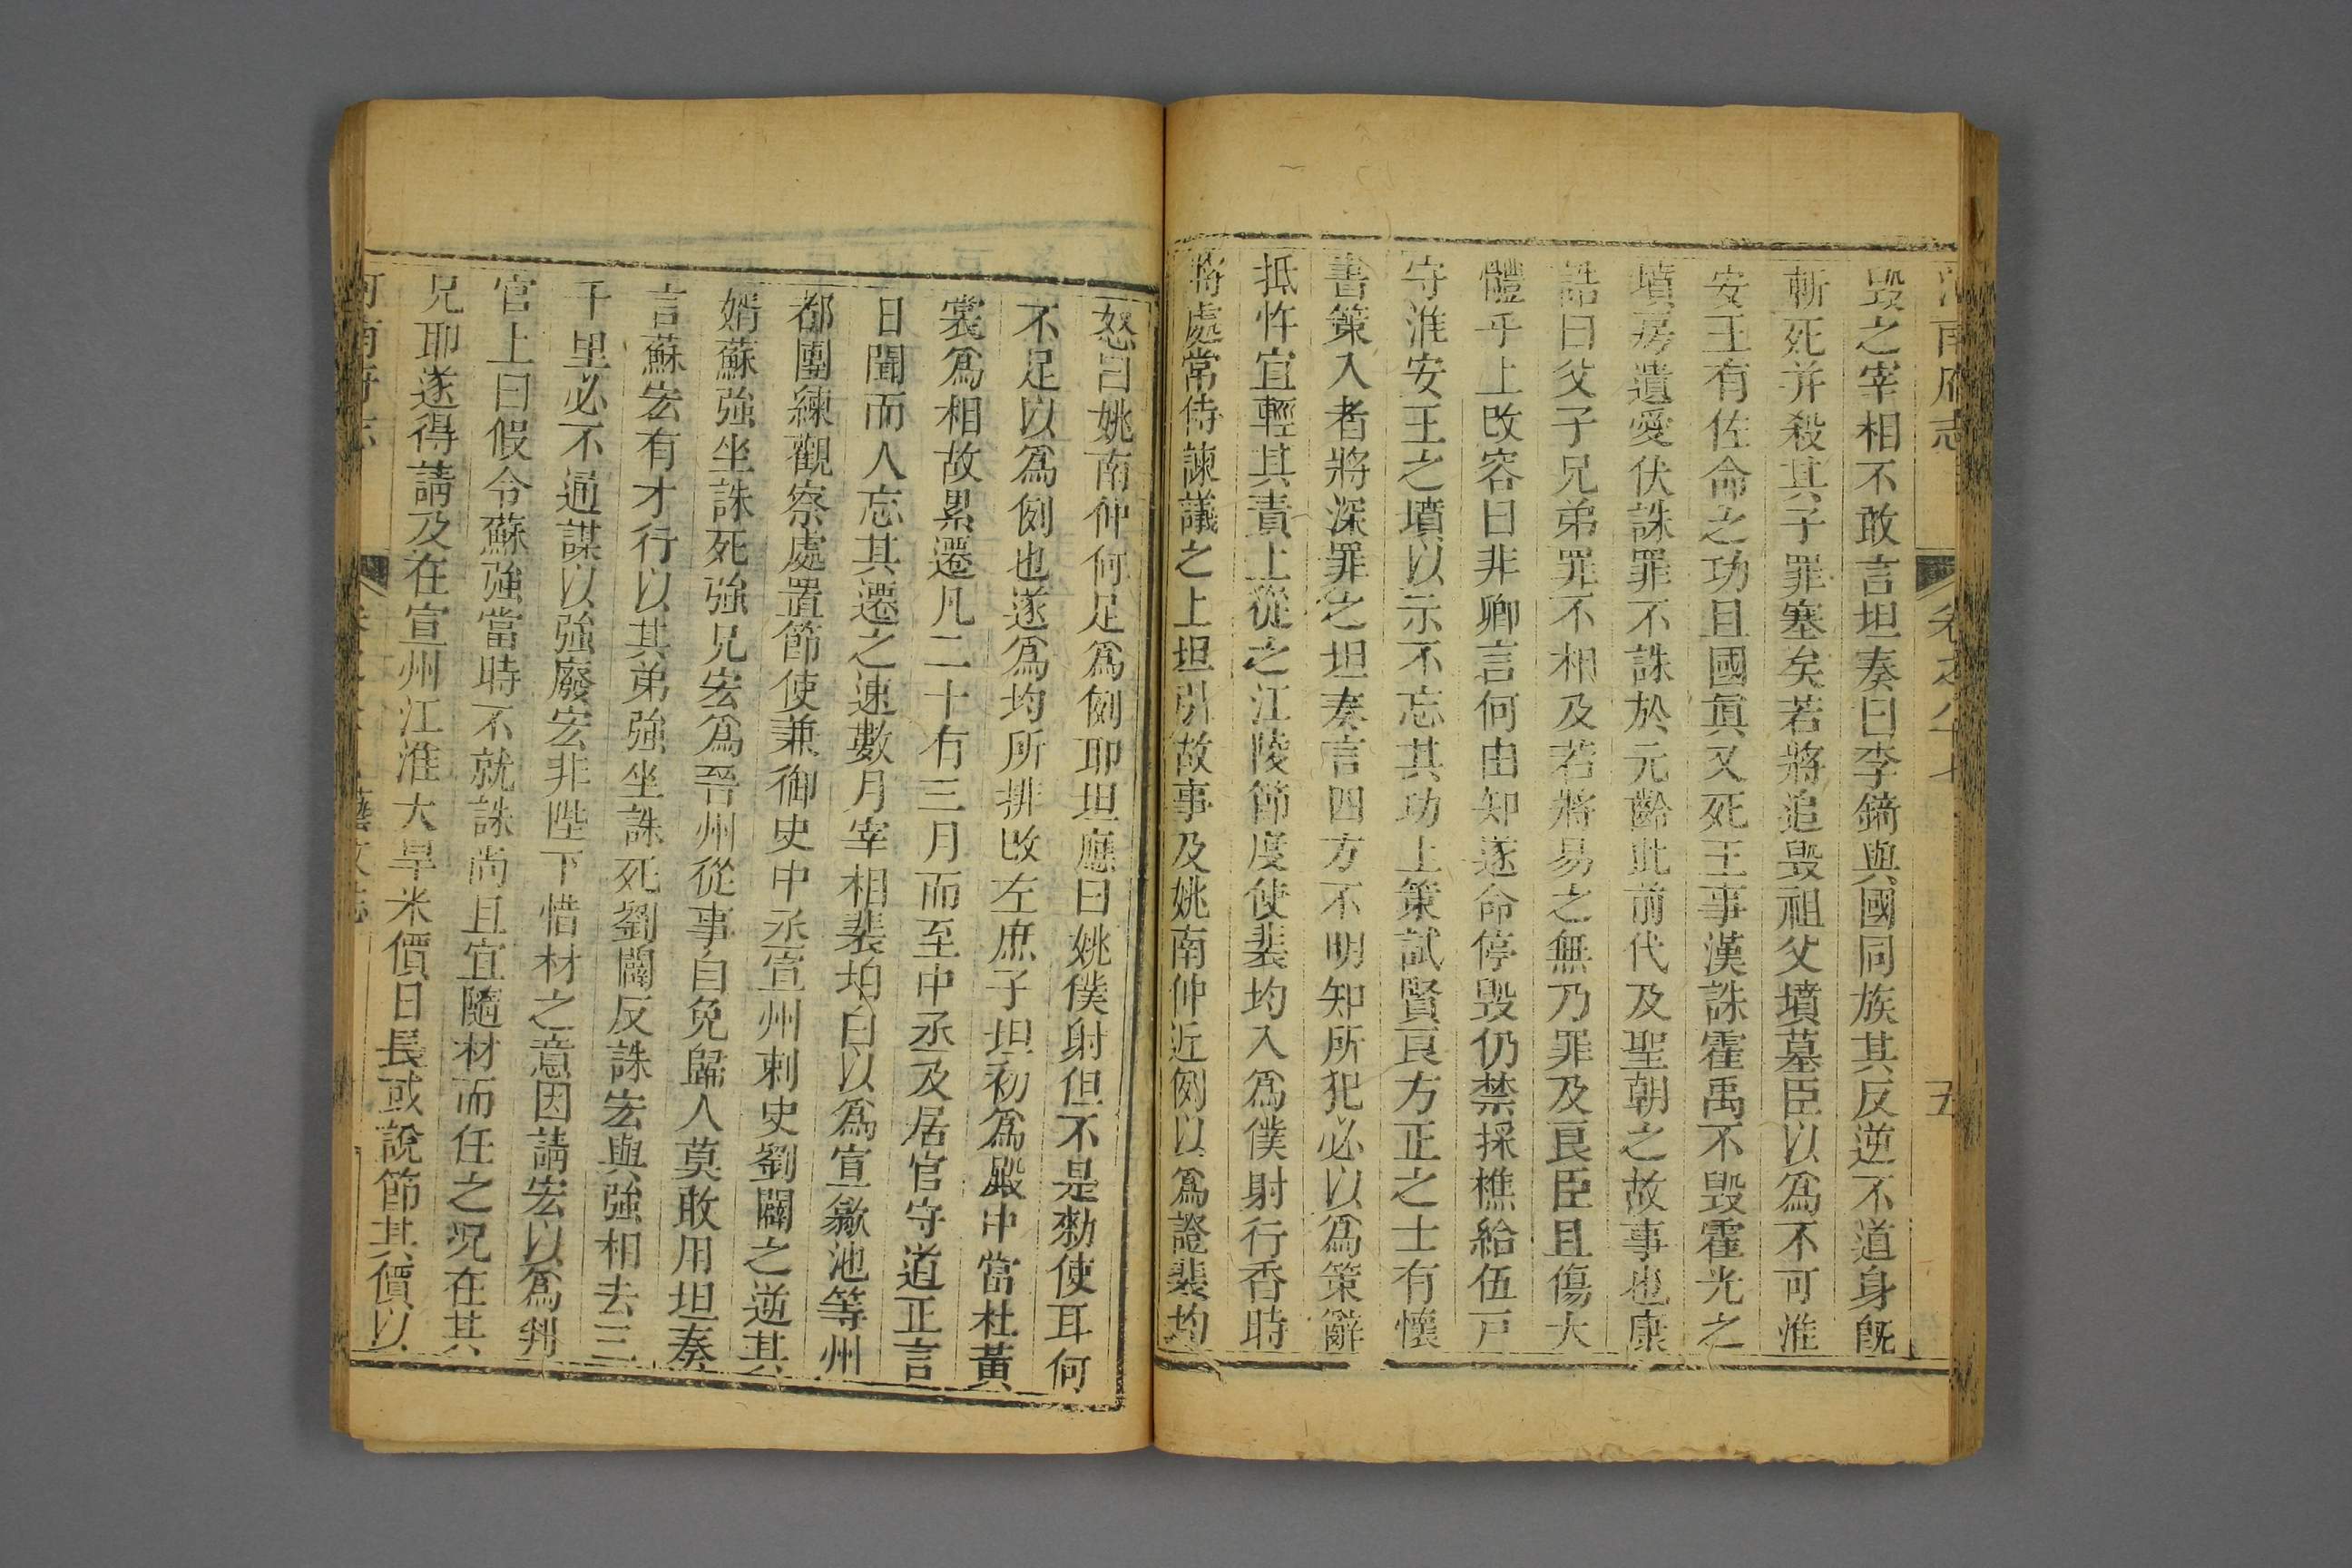 河南府志 卷之八十七 五
毀之宰相不敢言坦奏曰李錡與國同族其反逆不道身旣
斬死并殺其子罪塞矣若將追毀祖父墳墓臣以爲不可淮
安王有佐命之功且國貞又死王事漢誅霍禹不毀霍光之
墳房遺愛伏誅罪不誅於元齡此前代及聖朝之故事也康
誥曰父子兄弟罪不相及若將易之無乃罪及良臣且傷大
體乎上改容曰非卿言何由知遂命停毀仍禁採樵給伍戸
守淮安王之墳以示不忘其功上策試賢良方正之士有懷
書策入者將深罪之坦奏言四方不明知所犯必以爲策辭
抵忤宜輕其責上從之江陵節度使裴均入爲僕射行香時
將處常侍諫議之上坦引故事及姚南仲近例以爲證裴均
怒曰姚南仲何足爲例耶坦應曰姚僕射但不是勑使耳何
不足以爲例也遂爲均所排改左庶子坦初爲殿中當杜黃
裳爲相故累遷凡二十有三月而至中丞及居官守道正言
日聞而人忘其遷之速數月宰相裴垍白以爲宣歙池等州
都團練觀察處置節使兼御史中丞宣州刺史劉闢之逆其
婿蘇強坐誅死強兄宏爲晉州從事自免歸人莫敢用坦奏
言蘇宏有才行以其弟強坐誅死劉闢反誅宏與強相去三
千里必不通謀以強廢宏非陛下惜材之意因請宏以爲判
官上曰假令蘇強當時不就誅尚且宜隨材而任之况在其
兄耶遂得請及在宣州江淮大旱米價日長或說節其價以
河南府志 藝文志